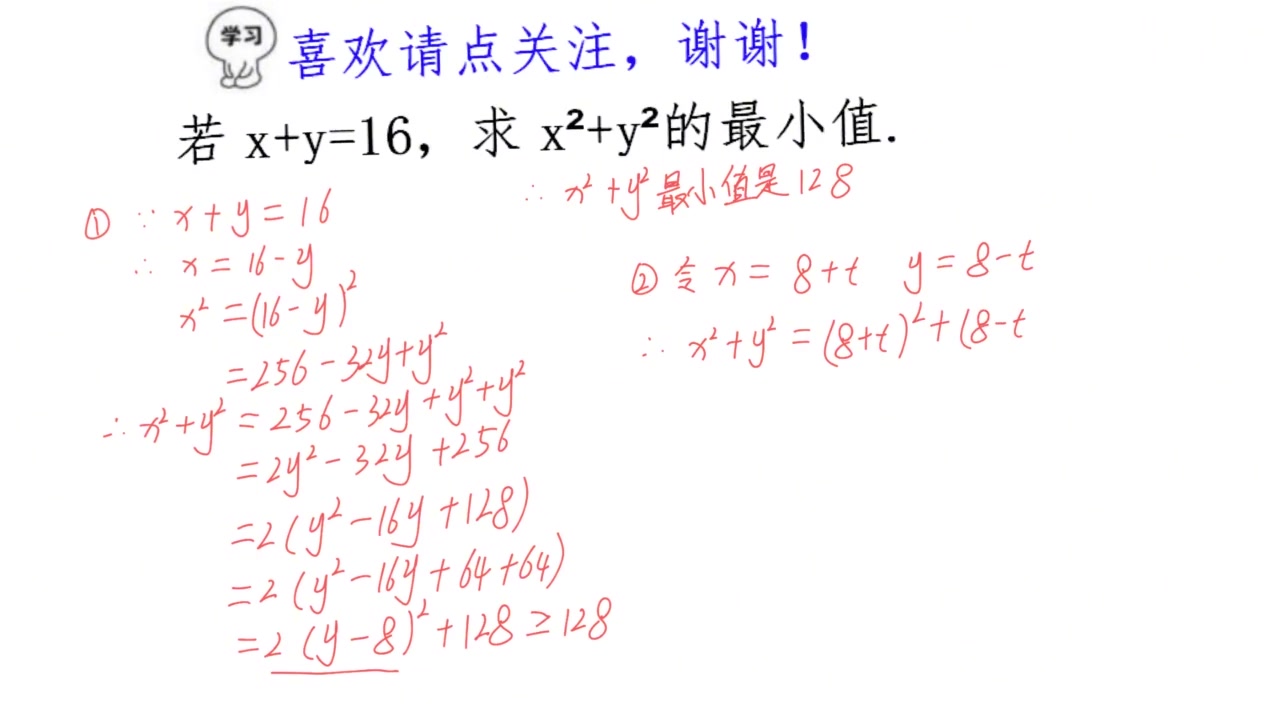 学习
喜欢请点关注，谢谢！
若 x+y=16，求 x²+y²的最小值.
① ∵ x+y=16
∴ x=16-y
x²=(16-y)²
=256-32y+y²
∴ x²+y²=256-32y+y²+y²
=2y²-32y+256
=2(y²-16y+128)
=2(y²-16y+64+64)
=2(y-8)²+128≥128
∴ x²+y²最小值是128
② 令 x=8+t y=8-t
∴ x²+y²=(8+t)²+(8-t